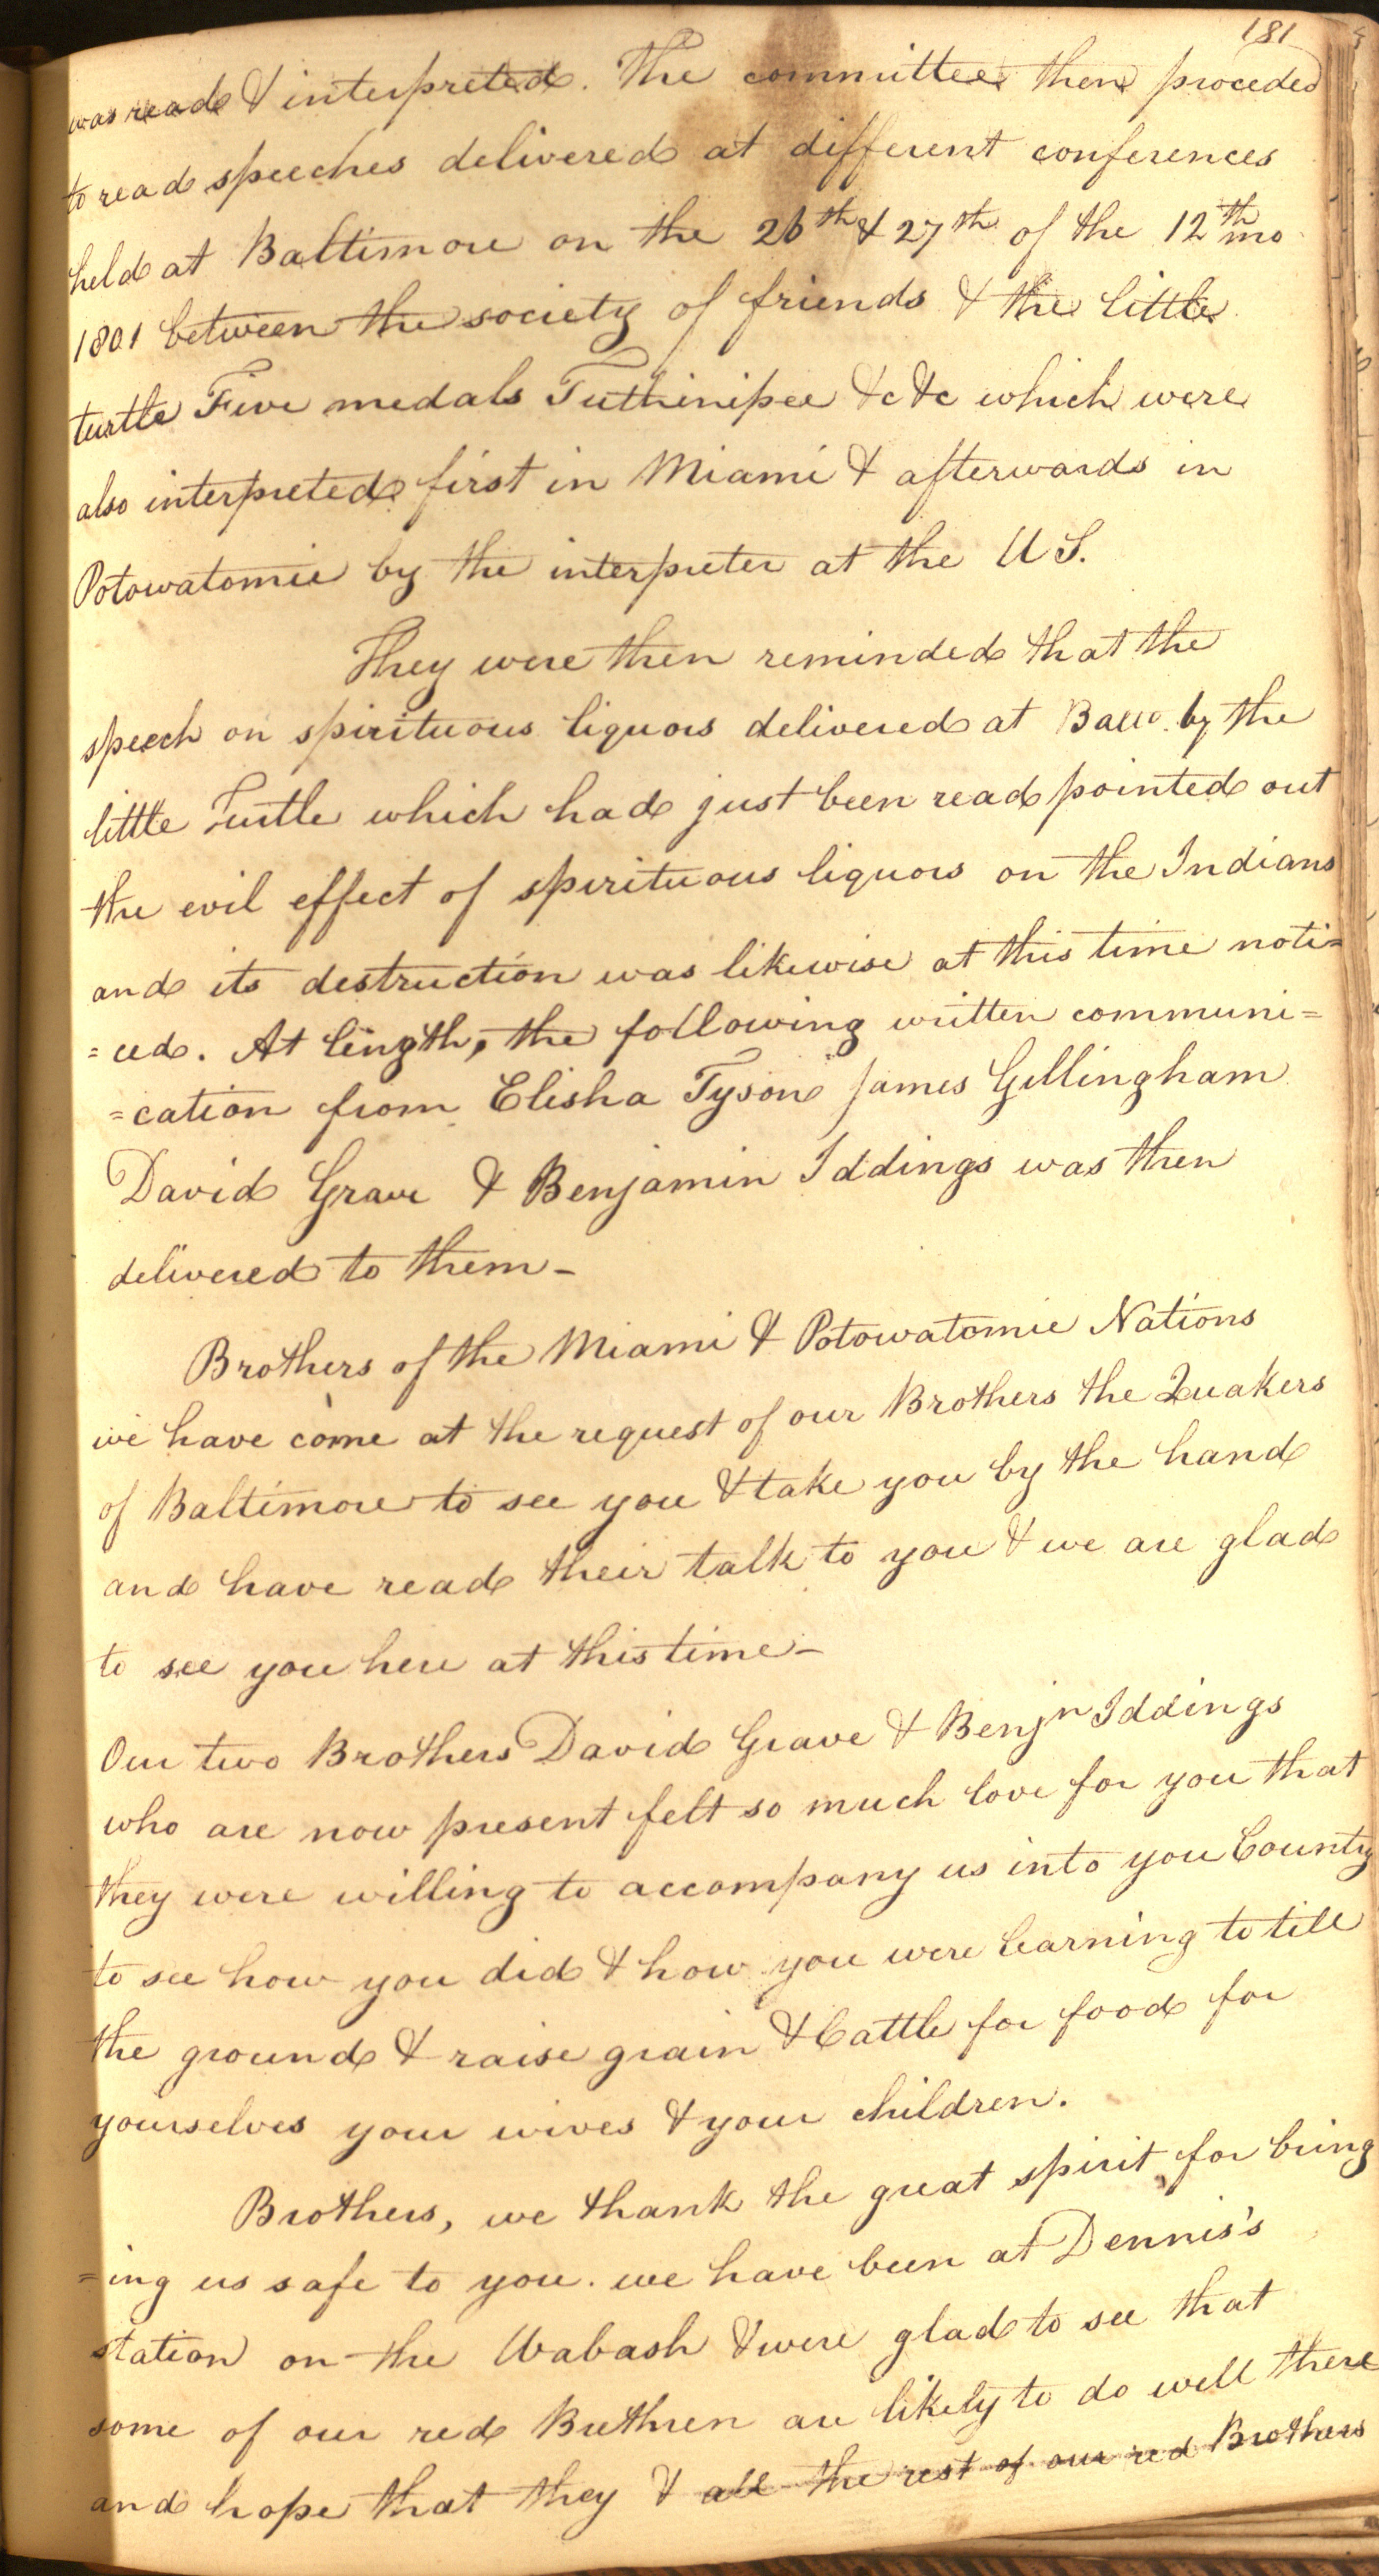 181
was read & interpreted. The committee then proceded
to read speeches delivered at different conferences
held at Baltimore on the 26th & 27th of the 12th mo
1801 between the society of friends & the little
turtle Five medals Tuthinipee &c &c which were
also interpreted first in Miami & afterwards in
Potowatomie by the interpreter at the U S.
They were then reminded that the
speech on spirituous liquors delivered at Balto. by the
little Turtle which had just been read pointed out
the evil effect of spirituous liquors on the Indians
and its destruction was likewise at this time noti=
=ced. At length, the following written communi=
=cation from Elisha Tyson James Gillingham
David Grave & Benjamin Iddings was then
delivered to them-
Brothers of the Miami & Potowatomie Nations
we have come at the request of our Brothers the Quakers
of Baltimore to see you & take you by the hand
and have read their talk to you & we are glad
to see you here at this time-
Our two Brothers David Grave & Benjn Iddings
who are now present felt so much love for you that
they were willing to accompany us into you County
to see how you did & how you were learning to till
the ground & raise grain & Cattle for food for
yourselves your wives & your children.
Brothers, we thank the great spirit for bring
=ing us safe to you. we have been at Dennis's
station on the Wabash & were glad to see that
some of our red Brethren are likely to do well there
and hope that they & all the rest of our red Brothers